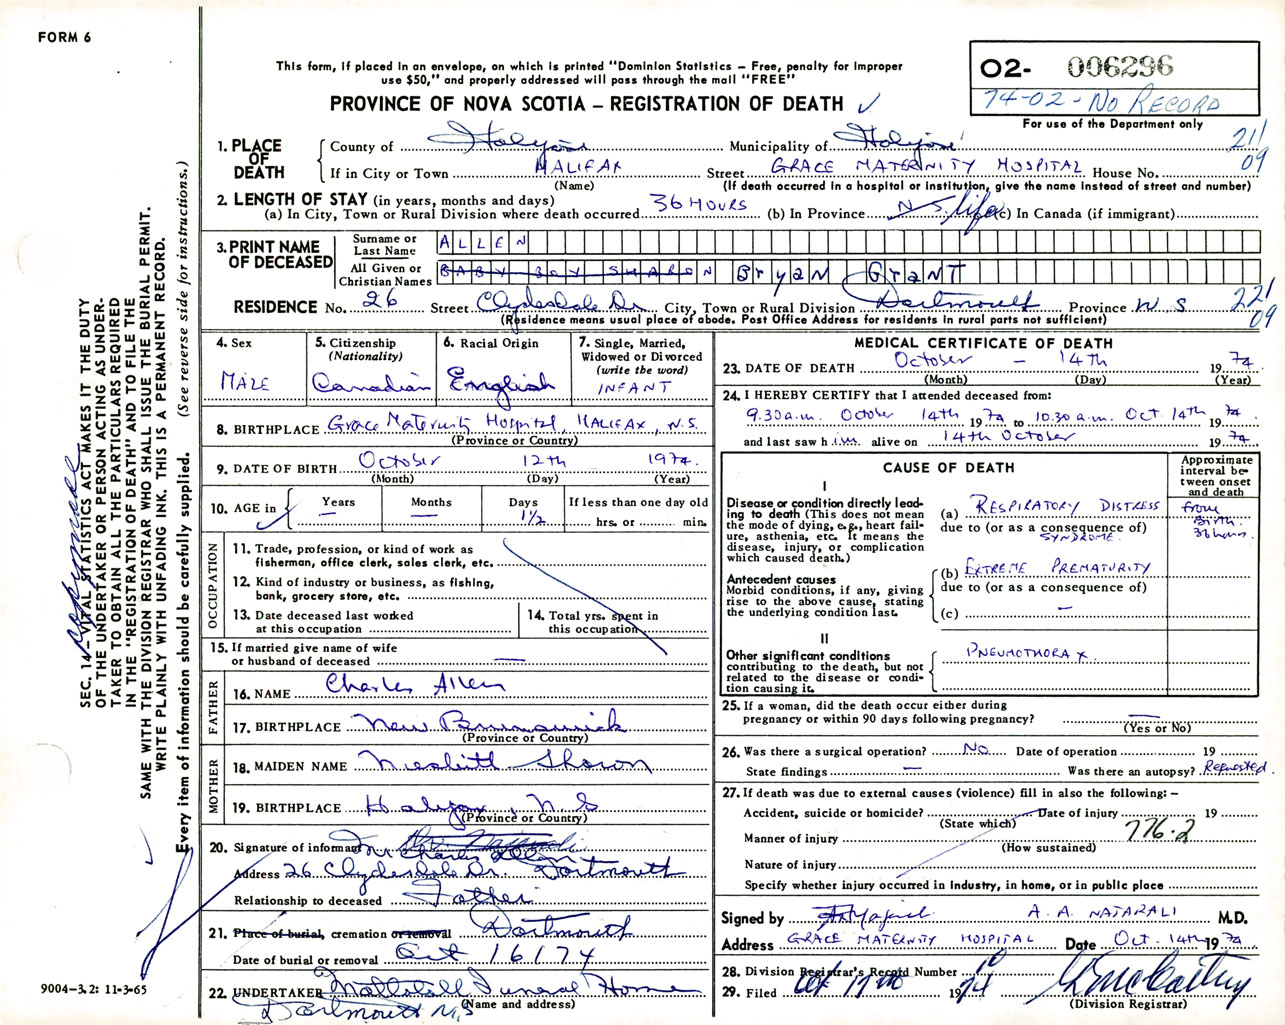 FORM 6
This form, if placed in an envelope, on which is printed "Dominion Statistics – Free, penalty for improper
use $50," and properly addressed will pass through the mail "FREE"
PROVINCE OF NOVA SCOTIA – REGISTRATION OF DEATH ✓
02- 006296
74-02 - No RECORD
For use of the Department only
21/
09
1. PLACE OF DEATH
County of Halifax Municipality of Halifax
If in City or Town HALIFAX Street GRACE MATERNITY HOSPITAL House No.
(Name) (If death occurred in a hospital or institution, give the name instead of street and number)
2. LENGTH OF STAY (in years, months and days)
(a) In City, Town or Rural Division where death occurred 36 HOURS (b) In Province N.S. life (c) In Canada (if immigrant)
3. PRINT NAME OF DECEASED
Surname or Last Name ALLEN
All Given or Christian Names BABY BOY SHARON Bryan GRANT
RESIDENCE No. 26 Street Clydesdale Dr. City, Town or Rural Division Dartmouth Province N S
(Residence means usual place of abode. Post Office Address for residents in rural parts not sufficient)
22/
09
4. Sex MALE
5. Citizenship (Nationality) Canadian
6. Racial Origin English
7. Single, Married, Widowed or Divorced (write the word) INFANT
8. BIRTHPLACE Grace Maternity Hospital, HALIFAX, N.S.
(Province or Country)
9. DATE OF BIRTH October 12th 1974.
(Month) (Day) (Year)
10. AGE in Years — Months — Days 1½ If less than one day old
hrs. or min.
OCCUPATION
11. Trade, profession, or kind of work as
fisherman, office clerk, sales clerk, etc.
12. Kind of industry or business, as fishing,
bank, grocery store, etc.
13. Date deceased last worked
at this occupation
14. Total yrs. spent in
this occupation
15. If married give name of wife
or husband of deceased —
FATHER
16. NAME Charles Allen
17. BIRTHPLACE New Brunswick
(Province or Country)
MOTHER
18. MAIDEN NAME Nesbitt Sharon
19. BIRTHPLACE Halifax, N.S
(Province or Country)
20. Signature of informant Mr Charles Allen
Address 26 Clydesdale Dr. Dartmouth
Relationship to deceased Father
21. Place of burial, cremation or removal Dartmouth
Date of burial or removal Oct 16/74
22. UNDERTAKER Mattatall Funeral Home
(Name and address)
Dartmouth N.S
MEDICAL CERTIFICATE OF DEATH
23. DATE OF DEATH October – 14th 1974
(Month) (Day) (Year)
24. I HEREBY CERTIFY that I attended deceased from:
9.30 a.m. October 14th 1974 to 10.30 a.m. Oct. 14th 1974.
and last saw him alive on 14th October 1974.
CAUSE OF DEATH
Approximate interval between onset and death
I
Disease or condition directly leading to death (This does not mean
the mode of dying, e.g., heart failure, asthenia, etc. It means the
disease, injury, or complication
which caused death.)
(a) RESPIRATORY DISTRESS
due to (or as a consequence of)
SYNDROME.
from
Birth.
36 hours.
Antecedent causes
Morbid conditions, if any, giving
rise to the above cause, stating
the underlying condition last.
(b) EXTREME PREMATURITY
due to (or as a consequence of)
(c) —
II
Other significant conditions
contributing to the death, but not
related to the disease or condition causing it.
PNEUMOTHORAX.
25. If a woman, did the death occur either during
pregnancy or within 90 days following pregnancy? —
(Yes or No)
26. Was there a surgical operation? No Date of operation 19
State findings — Was there an autopsy? Requested.
27. If death was due to external causes (violence) fill in also the following: –
Accident, suicide or homicide? Date of injury 19
(State which)
Manner of injury 776.2
(How sustained)
Nature of injury
Specify whether injury occurred in industry, in home, or in public place
Signed by A. A. NATARALI M.D.
Address GRACE MATERNITY HOSPITAL Date Oct. 14th 1974
28. Division Registrar's Record Number
29. Filed Oct 17th 1974
(Division Registrar)
SEC. 14 – VITAL STATISTICS ACT MAKES IT THE DUTY
OF THE UNDERTAKER OR PERSON ACTING AS UNDERTAKER TO OBTAIN ALL THE PARTICULARS REQUIRED
IN THE "REGISTRATION OF DEATH" AND TO FILE THE
SAME WITH THE DIVISION REGISTRAR WHO SHALL ISSUE THE BURIAL PERMIT.
WRITE PLAINLY WITH UNFADING INK. THIS IS A PERMANENT RECORD.
Every item of information should be carefully supplied. (See reverse side for instructions.)
9004-3.2: 11-3-65